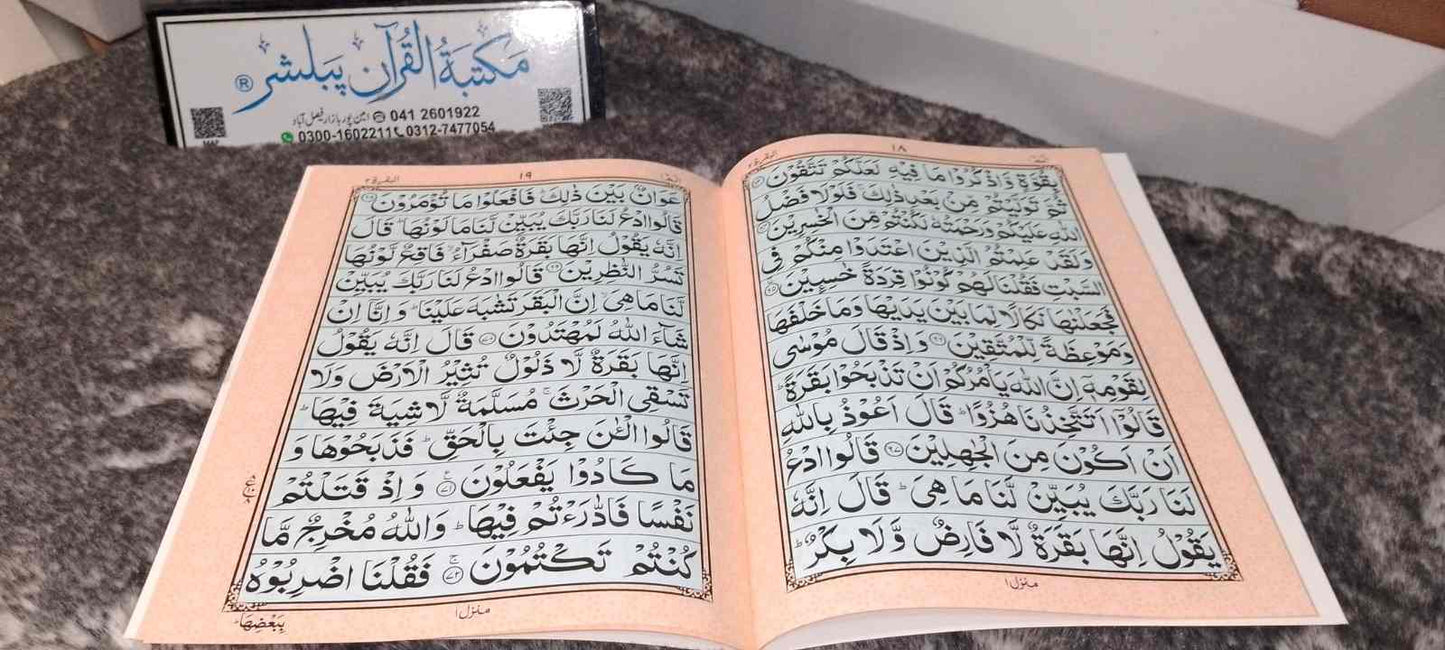 مَكتبَةُ القُرآن پبلشر ®
امین پور بازار فیصل آباد ☎ 041 2601922
0300-1602211 0312-7477054
MAP
البقرة ٢
١٨
الٓمّٓ ١
بِقُوَّةٍ وَّاذْكُرُوْا مَا فِيْهِ لَعَلَّكُمْ تَتَّقُوْنَ ۝
ثُمَّ تَوَلَّيْتُمْ مِّنْۢ بَعْدِ ذٰلِكَ ۚ فَلَوْلَا فَضْلُ
اللّٰهِ عَلَيْكُمْ وَرَحْمَتُهٗ لَكُنْتُمْ مِّنَ الْخٰسِرِيْنَ ۝
وَلَقَدْ عَلِمْتُمُ الَّذِيْنَ اعْتَدَوْا مِنْكُمْ فِى
السَّبْتِ فَقُلْنَا لَهُمْ كُوْنُوْا قِرَدَةً خٰسِـِٕيْنَ ۝٦٥
فَجَعَلْنٰهَا نَكَالًا لِّمَا بَيْنَ يَدَيْهَا وَمَا خَلْفَهَا
وَمَوْعِظَةً لِّلْمُتَّقِيْنَ ۝٦٦ وَاِذْ قَالَ مُوْسٰى
لِقَوْمِهٖٓ اِنَّ اللّٰهَ يَاْمُرُكُمْ اَنْ تَذْبَحُوْا بَقَرَةً ؕ
قَالُوْٓا اَتَتَّخِذُنَا هُزُوًا ؕ قَالَ اَعُوْذُ بِاللّٰهِ
اَنْ اَكُوْنَ مِنَ الْجٰهِلِيْنَ ۝٦٧ قَالُوا ادْعُ
لَنَا رَبَّكَ يُبَيِّنْ لَّنَا مَا هِىَ ؕ قَالَ اِنَّهٗ
يَقُوْلُ اِنَّهَا بَقَرَةٌ لَّا فَارِضٌ وَّلَا بِكْرٌ ؕ
منزل ١
الٓمّٓ ١
١٩
البقرة ٢
عَوَانٌۢ بَيْنَ ذٰلِكَ ؕ فَافْعَلُوْا مَا تُؤْمَرُوْنَ ۝٦٨
قَالُوا ادْعُ لَنَا رَبَّكَ يُبَيِّنْ لَّنَا مَا لَوْنُهَا ؕ قَالَ
اِنَّهٗ يَقُوْلُ اِنَّهَا بَقَرَةٌ صَفْرَآءُ ۙ فَاقِعٌ لَّوْنُهَا
تَسُرُّ النّٰظِرِيْنَ ۝٦٩ قَالُوا ادْعُ لَنَا رَبَّكَ يُبَيِّنْ
لَّنَا مَا هِىَ ۙ اِنَّ الْبَقَرَ تَشٰبَهَ عَلَيْنَا ؕ وَاِنَّآ اِنْ
شَآءَ اللّٰهُ لَمُهْتَدُوْنَ ۝٧٠ قَالَ اِنَّهٗ يَقُوْلُ
اِنَّهَا بَقَرَةٌ لَّا ذَلُوْلٌ تُثِيْرُ الْاَرْضَ وَلَا
تَسْقِى الْحَرْثَ ۚ مُسَلَّمَةٌ لَّا شِيَةَ فِيْهَا ؕ
قَالُوا الْـٰٔنَ جِئْتَ بِالْحَقِّ ؕ فَذَبَحُوْهَا وَ
مَا كَادُوْا يَفْعَلُوْنَ ۝٧١ وَاِذْ قَتَلْتُمْ
نَفْسًا فَادّٰرَءْتُمْ فِيْهَا ؕ وَاللّٰهُ مُخْرِجٌ مَّا
كُنْتُمْ تَكْتُمُوْنَ ۝٧٢ فَقُلْنَا اضْرِبُوْهُ
منزل ١
بِبَعْضِهَا ؕ